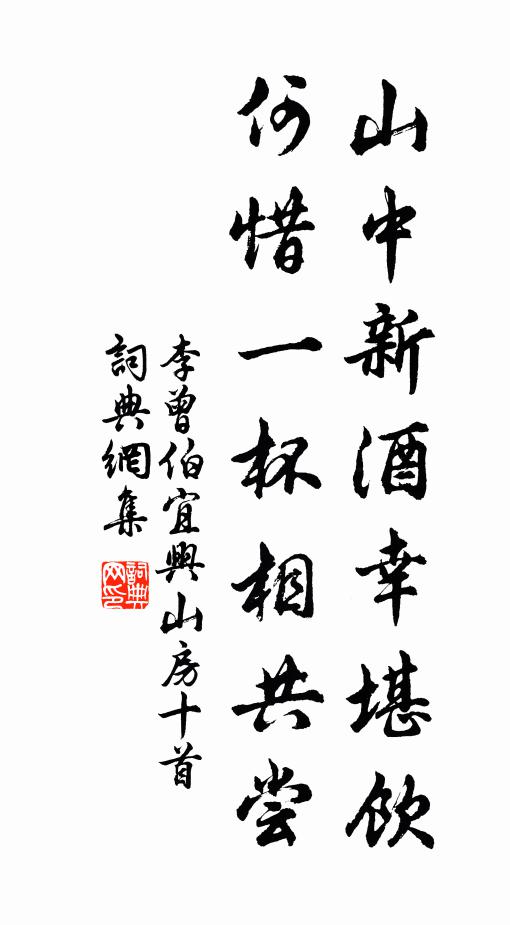 山中新酒幸堪飲
何惜一杯相共尝
李曾伯宜興山房十首
詞典網集
詞典网印